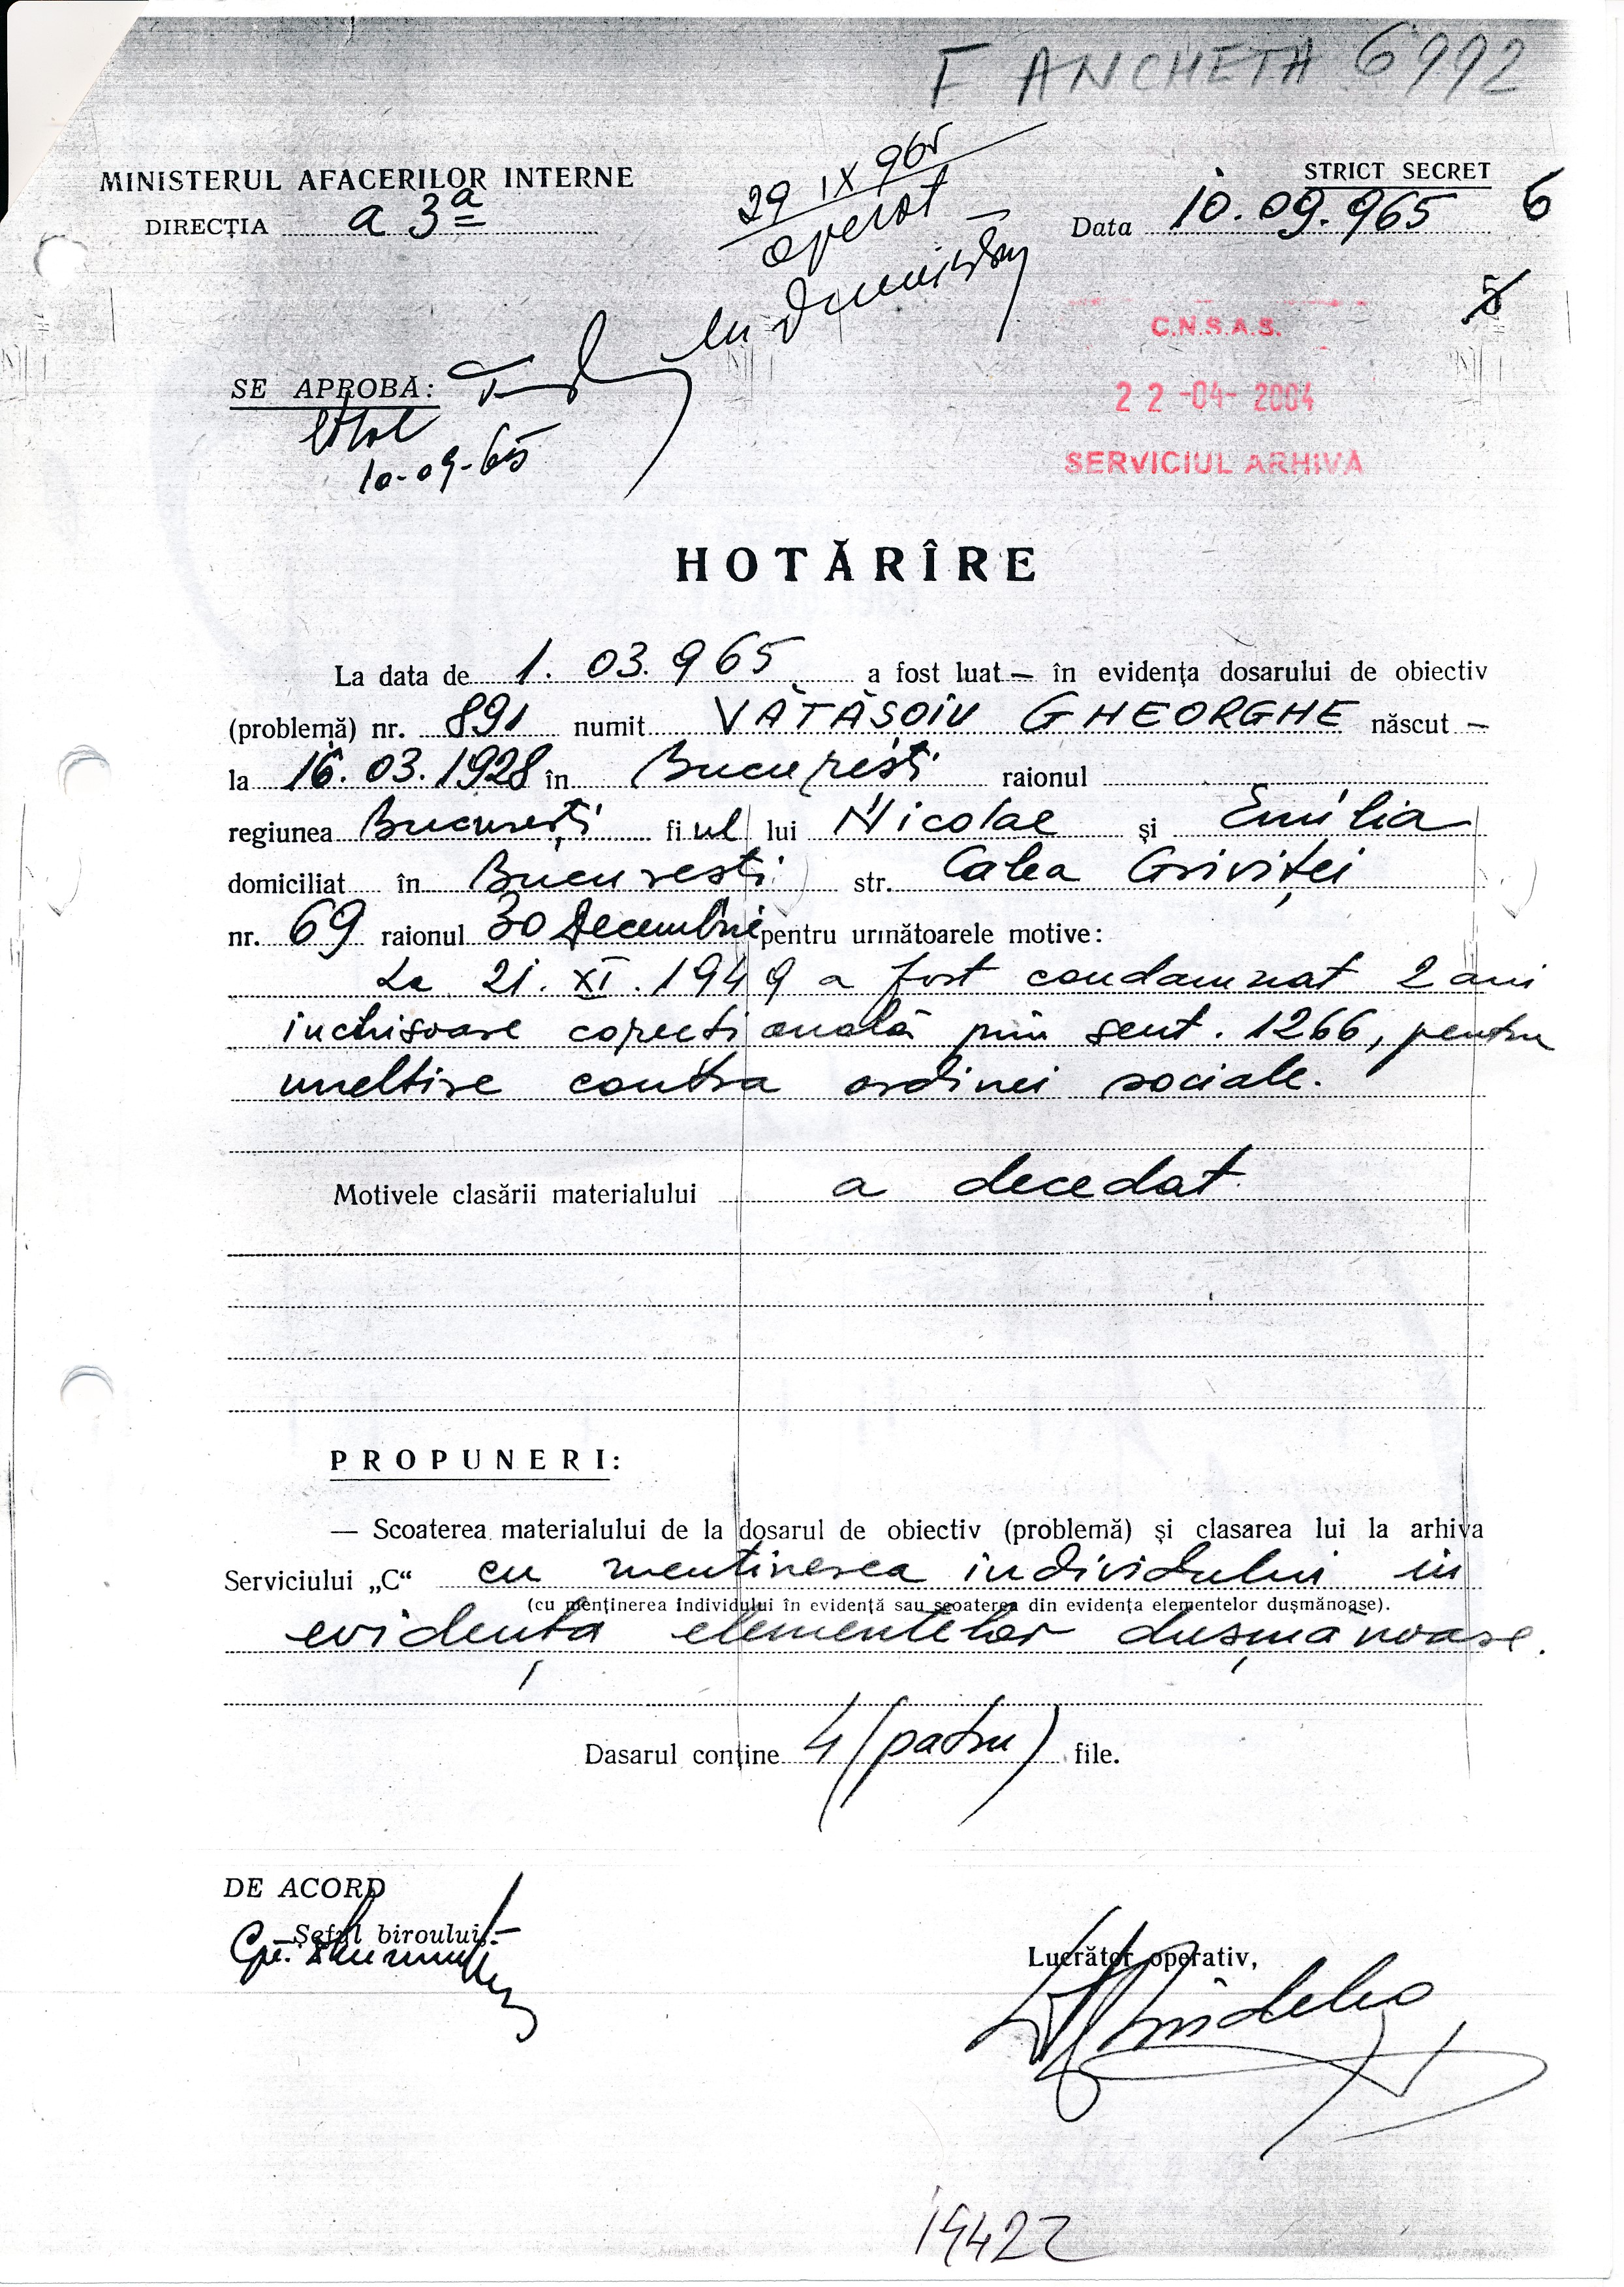 F ANCHETA 6992
MINISTERUL AFACERILOR INTERNE
STRICT SECRET
DIRECȚIA a 3ª
29 IX 965
operat
Data 10.09.965
6
5
C.N.S.A.S.
22-04-2004
SERVICIUL ARHIVĂ
SE APROBĂ:
10-09-65
HOTĂRÎRE
La data de 1. 03. 965 a fost luat — în evidența dosarului de obiectiv
(problemă) nr. 891 numit VĂTĂSOIU GHEORGHE născut —
la 16. 03. 1928 în București raionul
regiunea București fiul lui Nicolae și Emilia
domiciliat în București str. Calea Griviței
nr. 69 raionul 30 Decembrie pentru următoarele motive:
La 21. XI. 1949 a fost condamnat 2 ani
inchisoare corecțională prin sent. 1266, pentru
uneltire contra ordinei sociale.
Motivele clasării materialului a decedat
PROPUNERI:
— Scoaterea materialului de la dosarul de obiectiv (problemă) și clasarea lui la arhiva
Serviciului „C“ cu mentinerea individului in
(cu menținerea individului în evidență sau scoaterea din evidența elementelor dușmănoase).
evidența elementelor dușmănoase.
Dasarul conține 4 (patru) file.
DE ACORD
Șeful biroului
Lucrător operativ,
19422